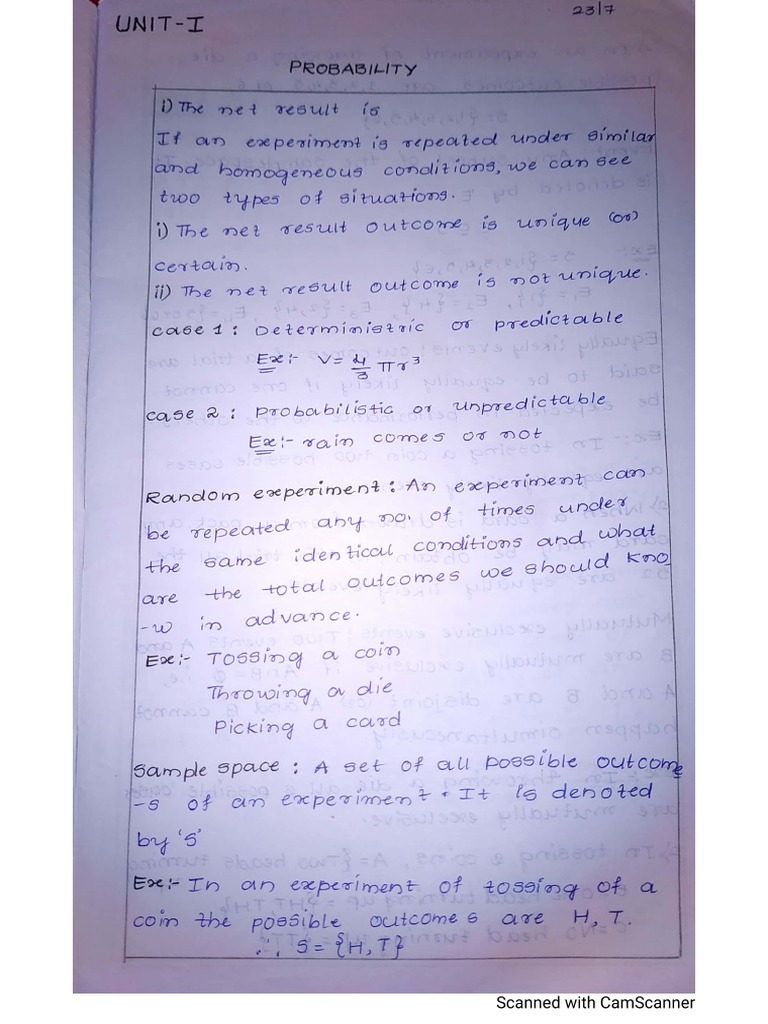 23/7
UNIT-I
PROBABILITY
i) The net result is
If an experiment is repeated under similar
and homogeneous conditions, we can see
two types of situations.
i) The net result outcome is unique (or)
certain.
ii) The net result outcome is not unique.
case 1: Deterministric or predictable
Ex:- V= 4/3 πr³
case 2: probabilistic or unpredictable
Ex:- rain comes or not
Random experiment: An experiment can
be repeated any no. of times under
the same identical conditions and what
are the total outcomes we should kno
-w in advance.
Ex:- Tossing a coin
Throwing a die
Picking a card
Sample space: A set of all possible outcome
-s of an experiment. It is denoted
by 's'
Ex:- In an experiment of tossing of a
coin the possible outcomes are H, T.
∴ S={H,T}
Scanned with CamScanner